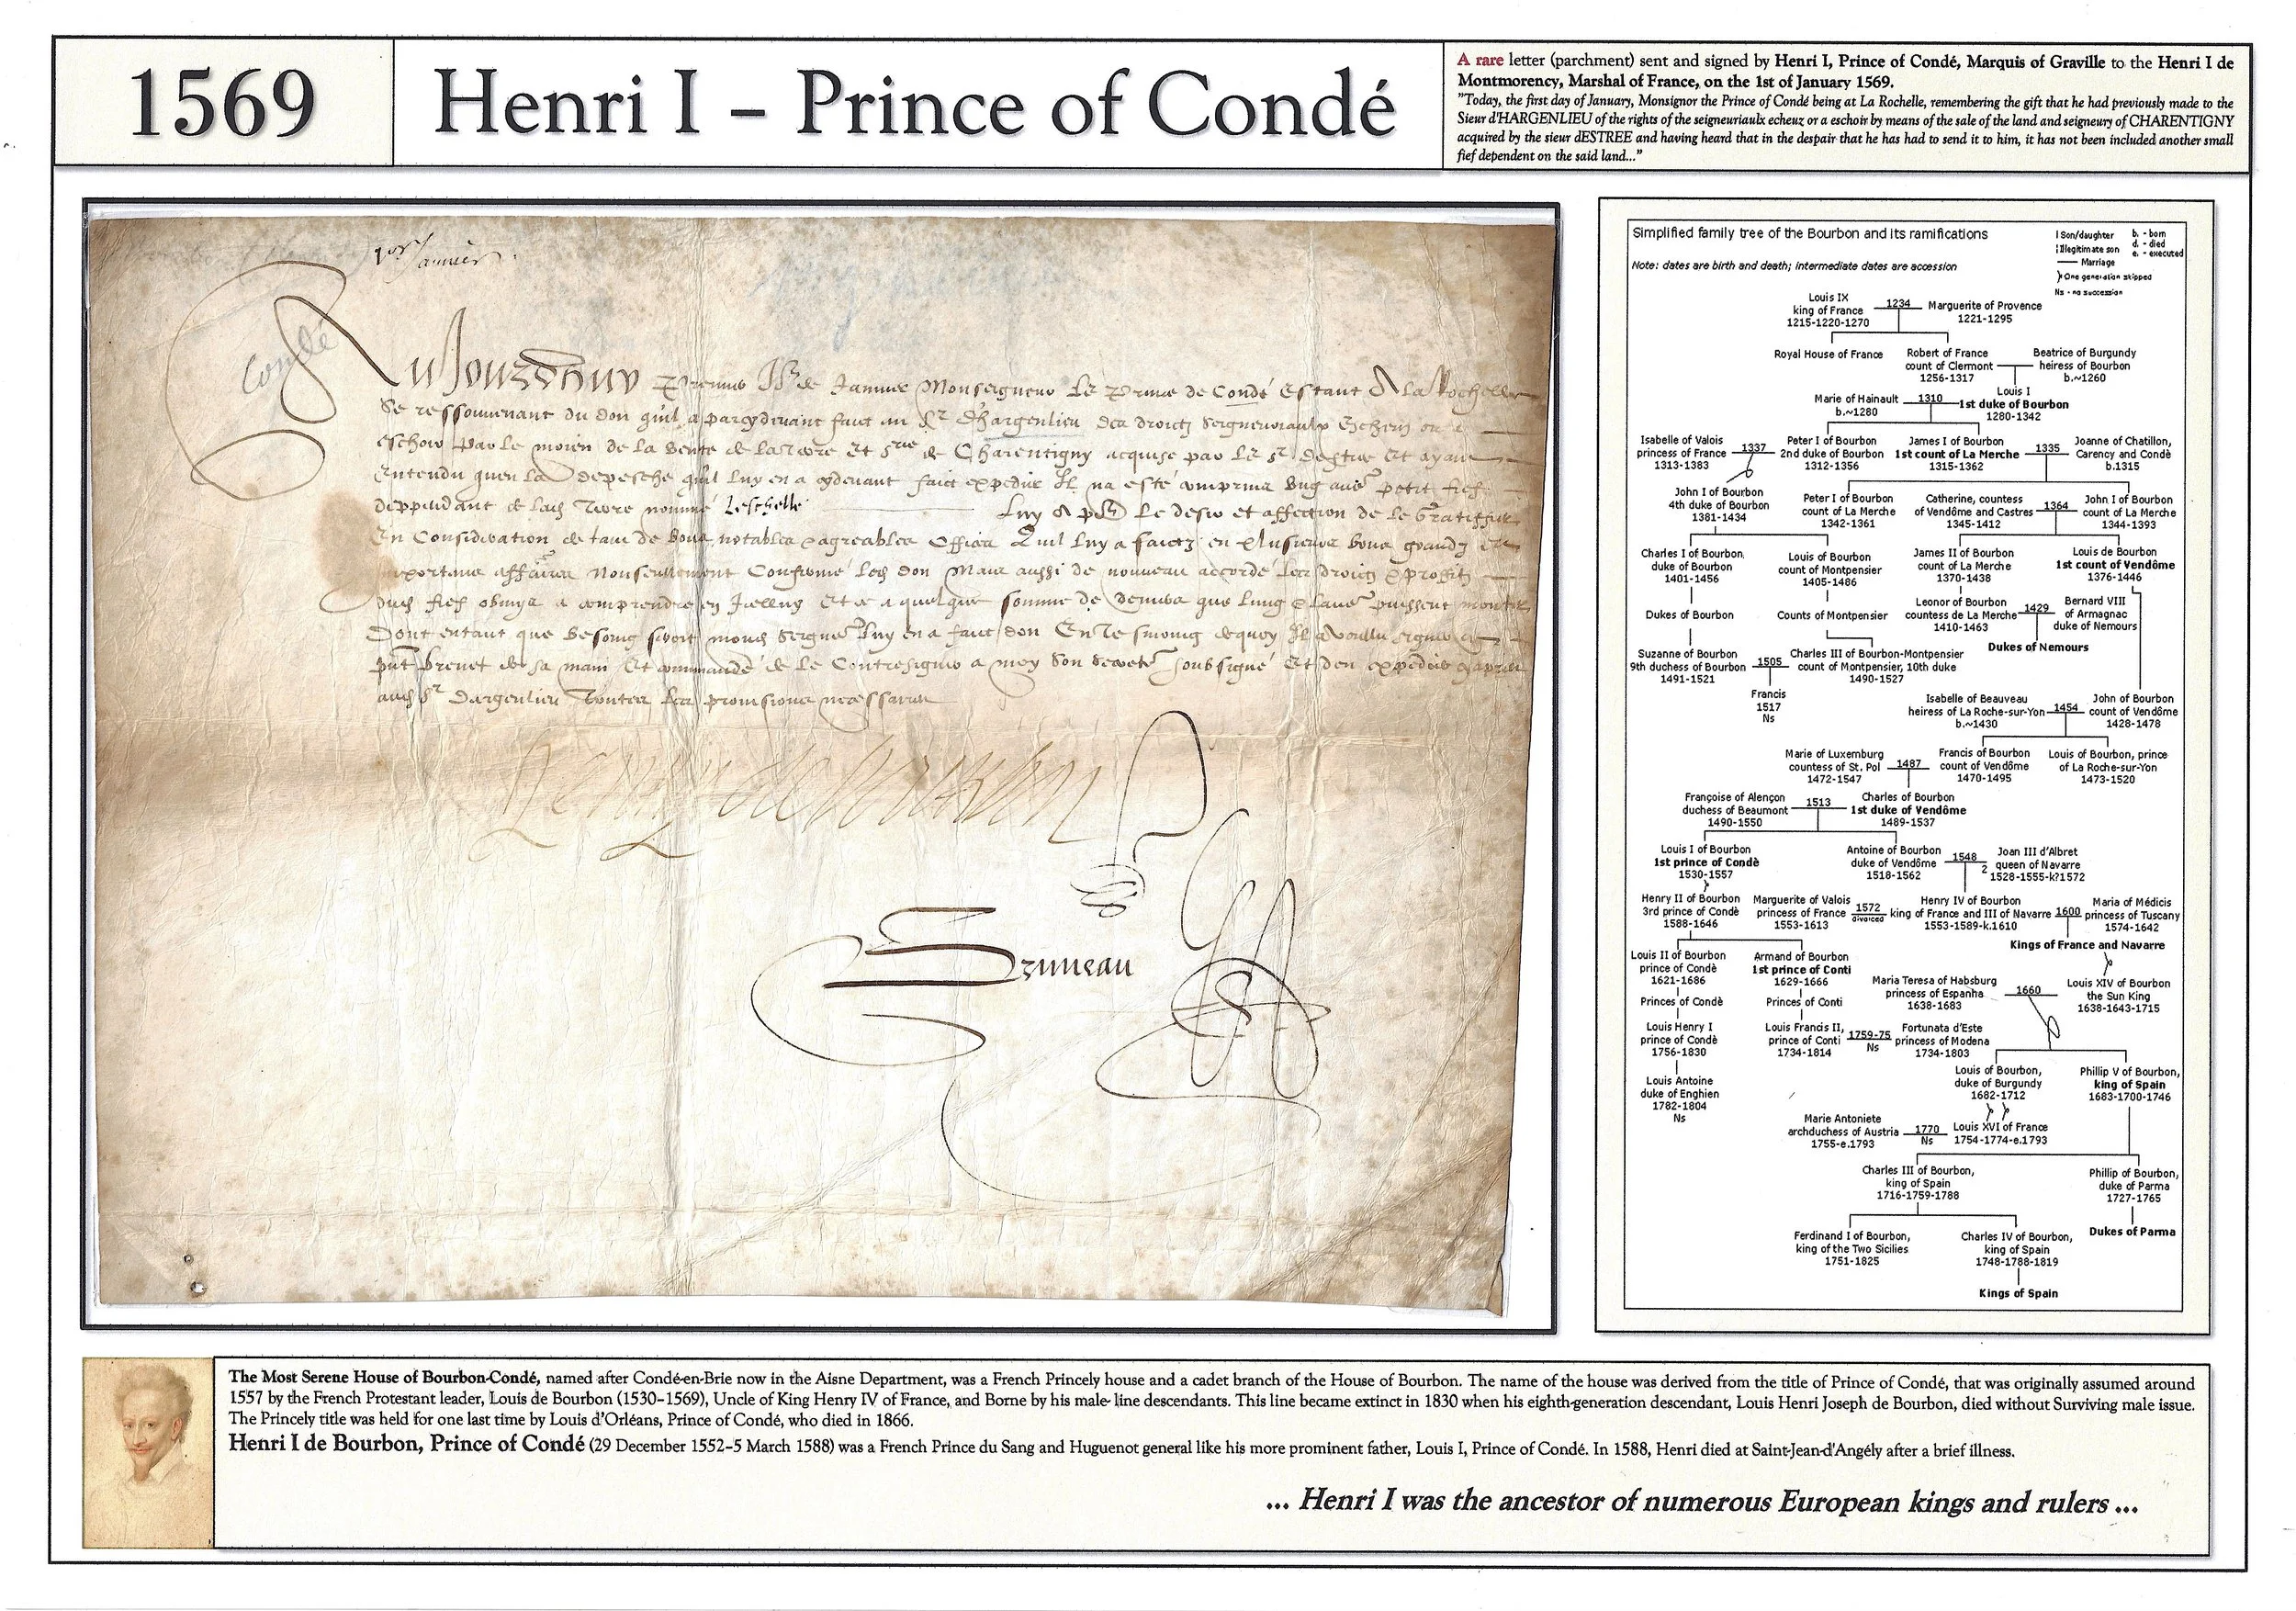 1569
Henri I – Prince of Condé
A rare letter (parchment) sent and signed by Henri I, Prince of Condé, Marquis of Graville to the Henri I de
Montmorency, Marshal of France, on the 1st of January 1569.
"Today, the first day of January, Monsignor the Prince of Condé being at La Rochelle, remembering the gift that he had previously made to the
Sieur d'HARGENLIEU of the rights of the seigneuriaulx echeuz or a eschoir by means of the sale of the land and seigneury of CHARENTIGNY
acquired by the sieur dESTREE and having heard that in the despair that he has had to send it to him, it has not been included another small
fief dependent on the said land..."
Condé
Monseigneur le de Condé estant A la Rochelle
Se ressouvenant du don qu'il a faict au Sr d'hargenlieu
eschoir par le moien de la vente de la et de Charentigny acquise par le Sr et ayant
Entendu quen la depesche qu'il luy en a cydevant faict Il na esté petit fief
deppendant de nommé Leschelle luy A le desir et affection de le Gratiffier
En Consideration de notables agreables quil luy a en plusieurs
affaires Nonseullement Confirmé don Mais aussi de nouveau accordé
fief a comprendre en Et a quelque somme de que lung
Dont entant que Besoing luy en a faict don En
brevet de sa main Et commandé de le Contresigner a moy Son soubsigné Et
Sr Dargenlieu Toutes provisions necessaires
Henry de bourbon
Bruneau
Simplified family tree of the Bourbon and its ramifications
Note: dates are birth and death; intermediate dates are accession
| Son/daughter b. - born
¦ Illegitimate son d. - died
— Marriage e. - executed
One generation skipped
Ns - no succession
Louis IX 1234 Marguerite of Provence
king of France 1221-1295
1215-1220-1270
Royal House of France Robert of France Beatrice of Burgundy
count of Clermont heiress of Bourbon
1256-1317 b.~1260
Louis I
Marie of Hainault 1310 1st duke of Bourbon
b.~1280 1280-1342
Isabelle of Valois 1337 Peter I of Bourbon James I of Bourbon 1335 Joanne of Chatillon,
princess of France 2nd duke of Bourbon 1st count of La Merche Carency and Condè
1313-1383 1312-1356 1315-1362 b.1315
John I of Bourbon Peter I of Bourbon Catherine, countess 1364 John I of Bourbon
4th duke of Bourbon count of La Merche of Vendôme and Castres count of La Merche
1381-1434 1342-1361 1345-1412 1344-1393
Charles I of Bourbon, Louis of Bourbon James II of Bourbon Louis de Bourbon
duke of Bourbon count of Montpensier count of La Merche 1st count of Vendôme
1401-1456 1405-1486 1370-1438 1376-1446
Dukes of Bourbon Counts of Montpensier Leonor of Bourbon 1429 Bernard VIII
countess de La Merche of Armagnac
1410-1463 duke de Nemours
Dukes of Nemours
Suzanne of Bourbon 1505 Charles III of Bourbon-Montpensier
9th duchess of Bourbon count of Montpensier, 10th duke
1491-1521 1490-1527
Francis
1517
Ns
Isabelle of Beauveau 1454 John of Bourbon
heiress of La Roche-sur-Yon count of Vendôme
b.~1430 1428-1478
Marie of Luxemburg 1487 Francis of Bourbon Louis of Bourbon, prince
countess of St. Pol count of Vendôme of La Roche-sur-Yon
1472-1547 1470-1495 1473-1520
Françoise of Alençon 1513 Charles of Bourbon
duchess of Beaumont 1st duke of Vendôme
1490-1550 1489-1537
Louis I of Bourbon Antoine of Bourbon 1548 Joan III d'Albret
1st prince of Condè duke of Vendôme 2 queen of Navarre
1530-1557 1518-1562 1528-1555-k?1572
Henry II of Bourbon Marguerite of Valois 1572 Henry IV of Bourbon 1600 Maria of Médicis
3rd prince of Condè princess of France divorced king of France and III of Navarre princess of Tuscany
1588-1646 1553-1613 1553-1589-k.1610 1574-1642
Kings of France and Navarre
Louis II of Bourbon Armand of Bourbon
prince of Condè 1st prince of Conti
1621-1686 1629-1666
Maria Teresa of Habsburg 1660 Louis XIV of Bourbon
princess of Espanha the Sun King
1638-1683 1638-1643-1715
Princes of Condè Princes of Conti
Louis Henry I Louis Francis II, 1759-75 Fortunata d'Este
prince of Condè prince of Conti Ns princess of Modena
1756-1830 1734-1814 1734-1803
Louis Antoine Louis of Bourbon, Phillip V of Bourbon,
duke of Enghien duke of Burgundy king of Spain
1782-1804 1682-1712 1683-1700-1746
Ns
Marie Antoniete 1770 Louis XVI of France
archduchess of Austria Ns 1754-1774-e.1793
1755-e.1793
Charles III of Bourbon, Phillip of Bourbon,
king of Spain duke of Parma
1716-1759-1788 1727-1765
Dukes of Parma
Ferdinand I of Bourbon, Charles IV of Bourbon,
king of the Two Sicilies king of Spain
1751-1825 1748-1788-1819
Kings of Spain
The Most Serene House of Bourbon-Condé, named after Condé-en-Brie now in the Aisne Department, was a French Princely house and a cadet branch of the House of Bourbon. The name of the house was derived from the title of Prince of Condé, that was originally assumed around
1557 by the French Protestant leader, Louis de Bourbon (1530–1569), Uncle of King Henry IV of France, and Borne by his male- line descendants. This line became extinct in 1830 when his eighth-generation descendant, Louis Henri Joseph de Bourbon, died without Surviving male issue.
The Princely title was held for one last time by Louis d'Orléans, Prince of Condé, who died in 1866.
Henri I de Bourbon, Prince of Condé (29 December 1552–5 March 1588) was a French Prince du Sang and Huguenot general like his more prominent father, Louis I, Prince of Condé. In 1588, Henri died at Saint-Jean-d'Angély after a brief illness.
... Henri I was the ancestor of numerous European kings and rulers ...